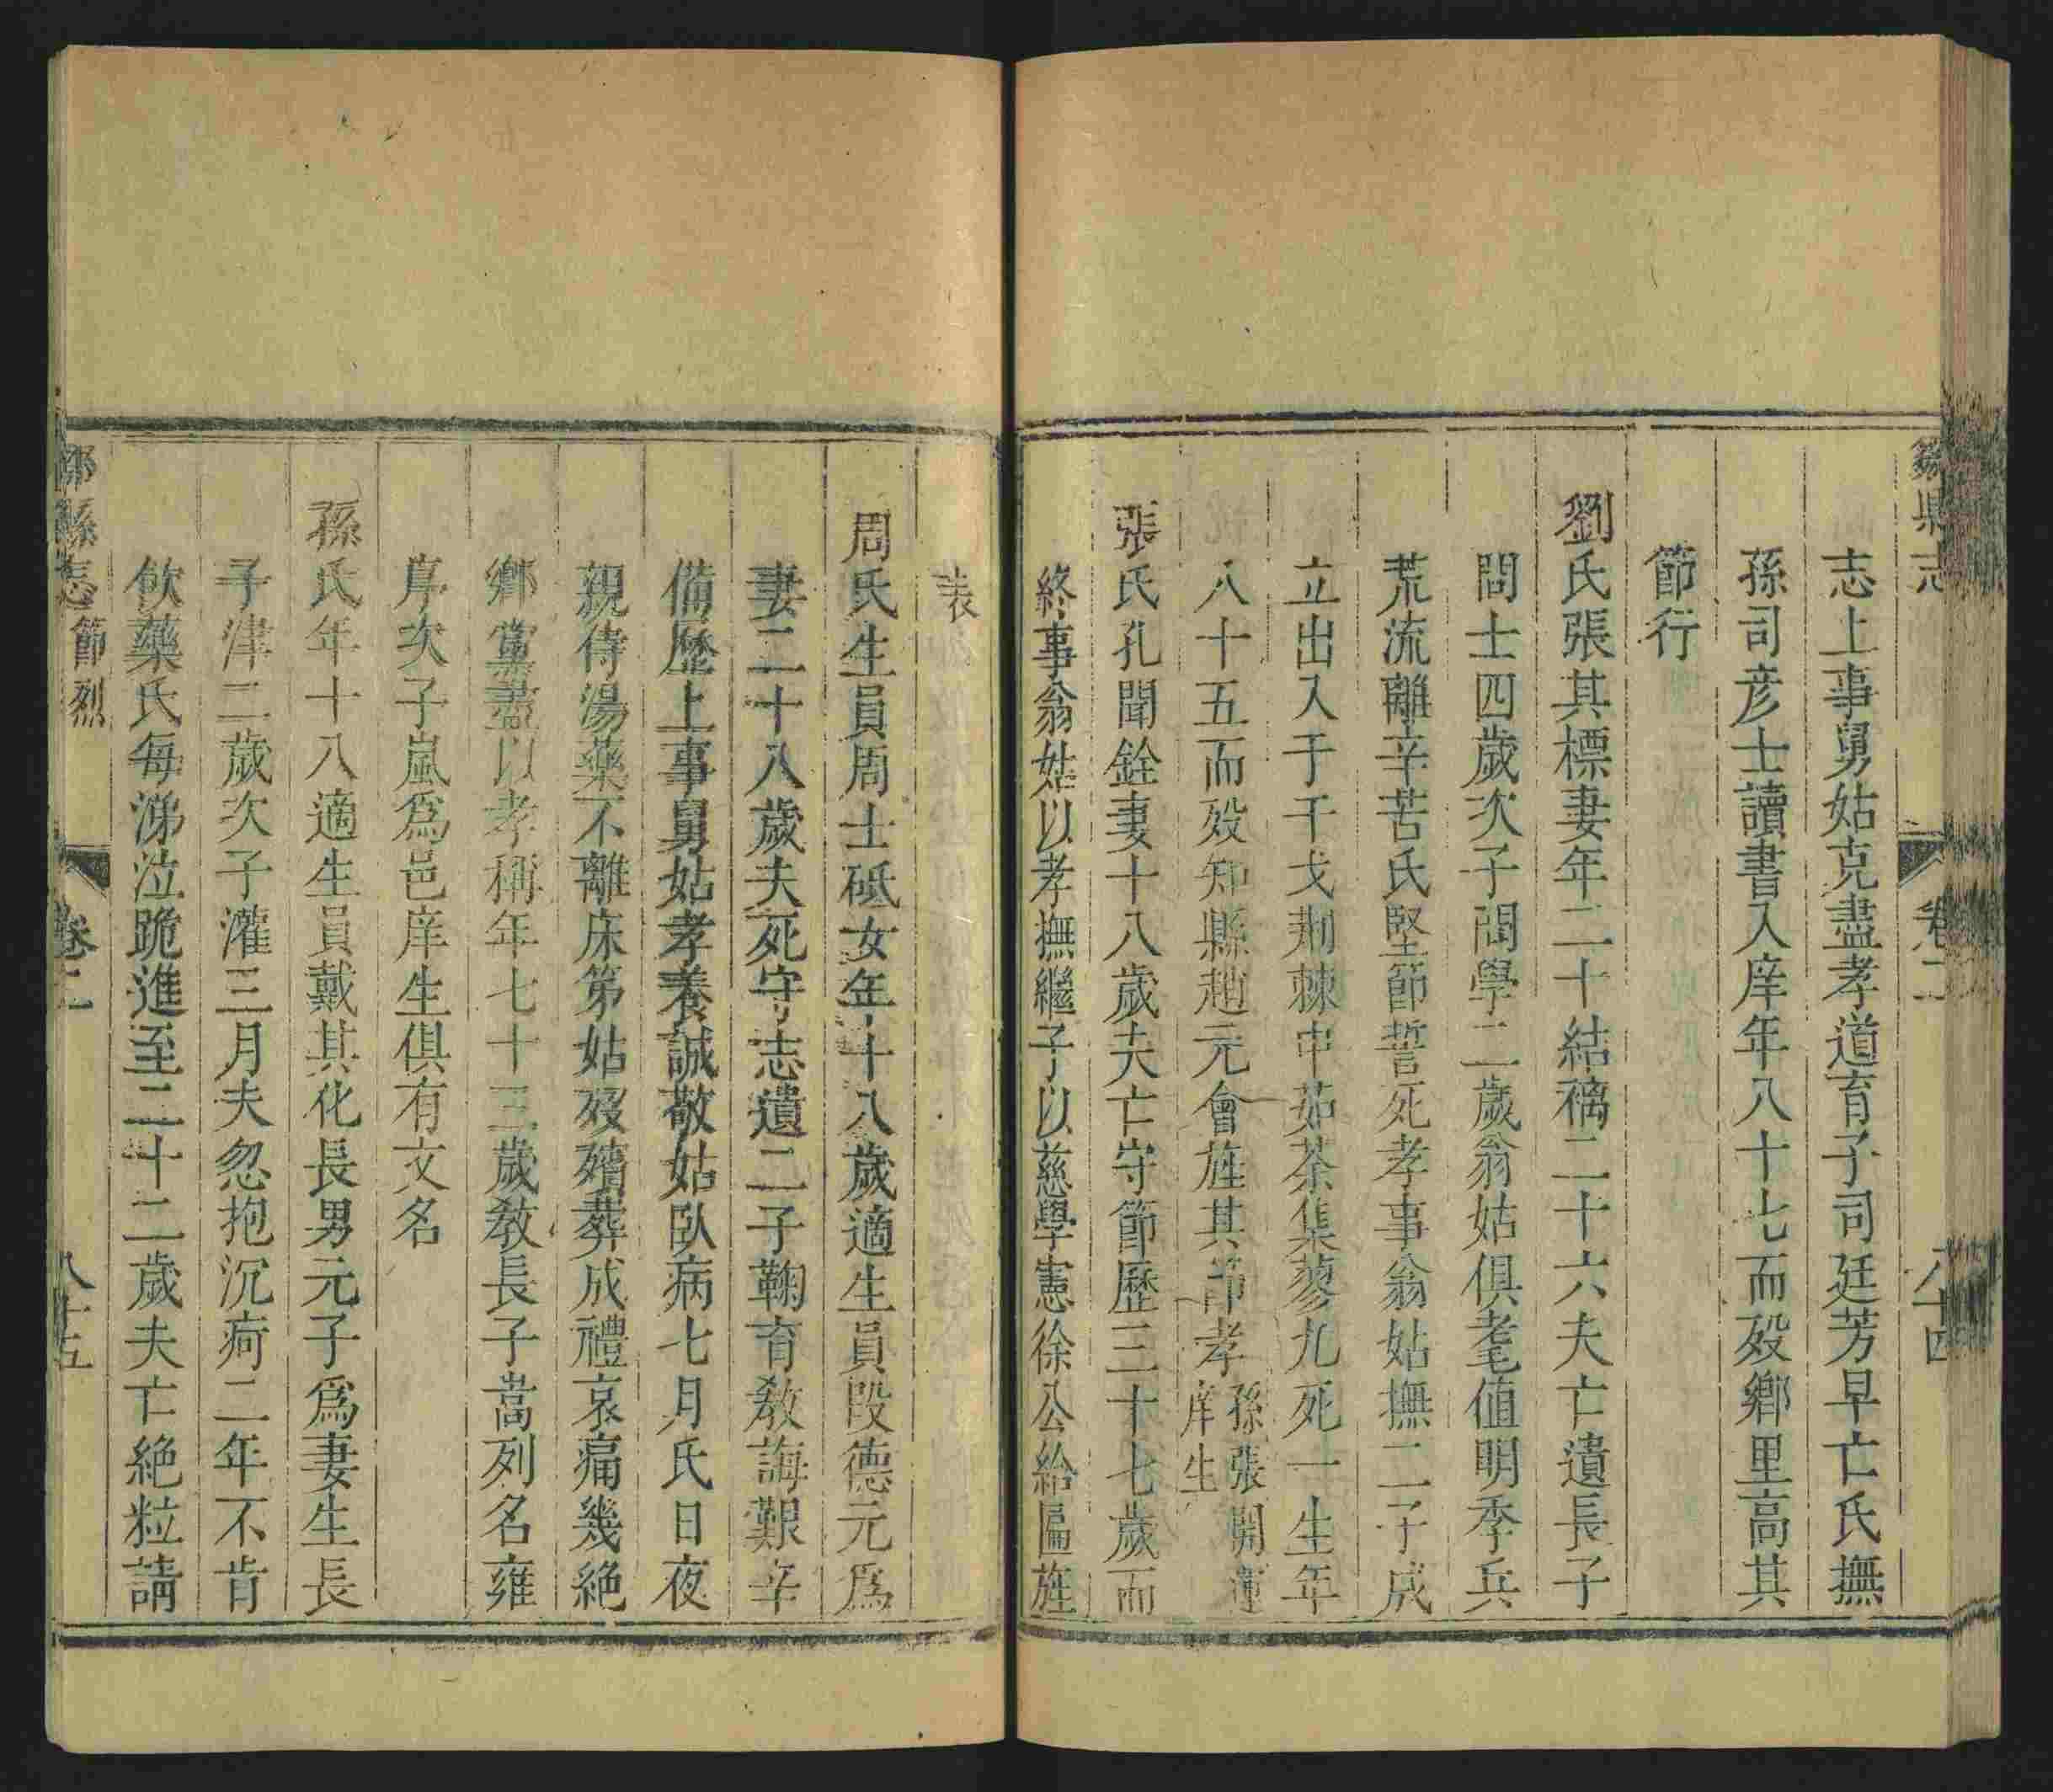 鄒縣志
卷二
八十四
志上事舅姑克盡孝道育子司廷芳早亡氏撫
孫司彦士讀書入庠年八十七而歿鄉里高其
節行
劉氏張其標妻年二十結褵二十六夫亡遺長子
問士四歲次子問學二歲翁姑俱耄值明季兵
荒流離辛苦氏堅節誓死孝事翁姑撫二子成
立出入于干戈荆棘中茹荼集蓼九死一生年
八十五而歿知縣趙元會旌其節孝孫張開運
庠生
張氏孔聞銓妻十八歲夫亡守節歷三十七歲而
終事翁姑以孝撫繼子以慈學憲徐公給匾旌
表
周氏生員周士砥女年十八歲適生員段德元爲
妻二十八歲夫死守志遺二子鞠育教誨艱辛
備歷上事舅姑孝養誠敬姑臥病七月氏日夜
親侍湯藥不離床第姑歿殯葬成禮哀痛幾絶
鄉黨盡以孝稱年七十三歲教長子嵩列名雍
庠次子嵐爲邑庠生俱有文名
孫氏年十八適生員戴其化長男元子爲妻生長
子津二歲次子灌三月夫忽抱沉疴二年不肯
飲藥氏每涕泣跪進至二十二歲夫亡絶粒請
鄒縣志
節烈
卷二
八十五